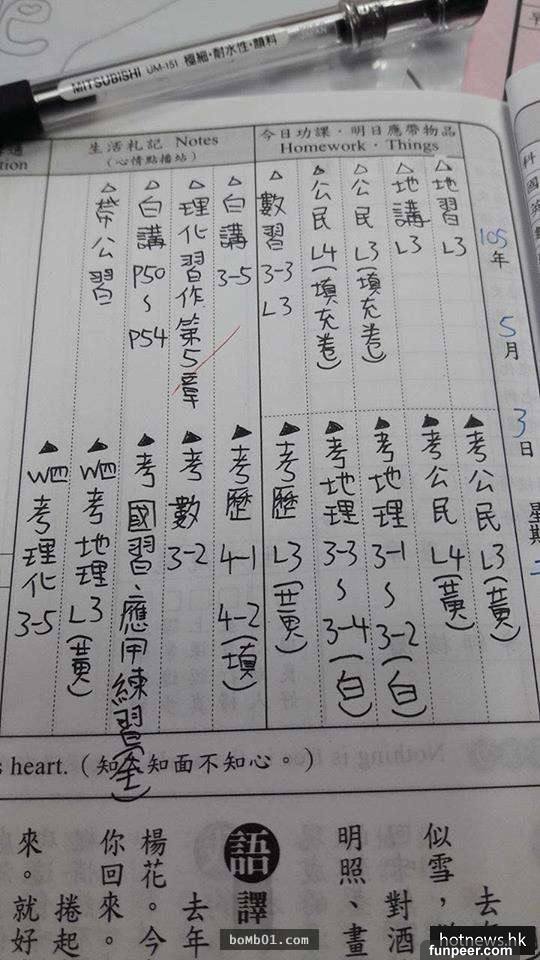 MITSUBISHI UM-151 極細・耐水性・顏料
今日功課・明日應帶物品
Homework・Things
生活札記 Notes
(心情點播站)
tion
105年
5月
3日
星期
△地習 L3
△地講 L3
△公民 L3(填充卷)
△公民 L4(填充卷)
△數習 3-3 L3
△白講 3-5
△理化習作第5章
△白講 P50~P54
△帶公習
▲考公民 L3(黃)
▲考公民 L4(黃)
▲考地理 3-1~3-2(白)
▲考地理 3-3~3-4(白)
▲考歷 L3(黃)
▲考歷 4-1 4-2(填)
▲考數 3-2
▲考國習、應用練習(全)
▲W四考地理 L3(黃)
▲W四考理化 3-5
s heart.(知人知面不知心。)
語譯
去
似雪,
對酒
明照、畫
去年
楊花。今
你回來。
捲起
來。就好
boMb01.com
hotnews.hk
funpeer.com